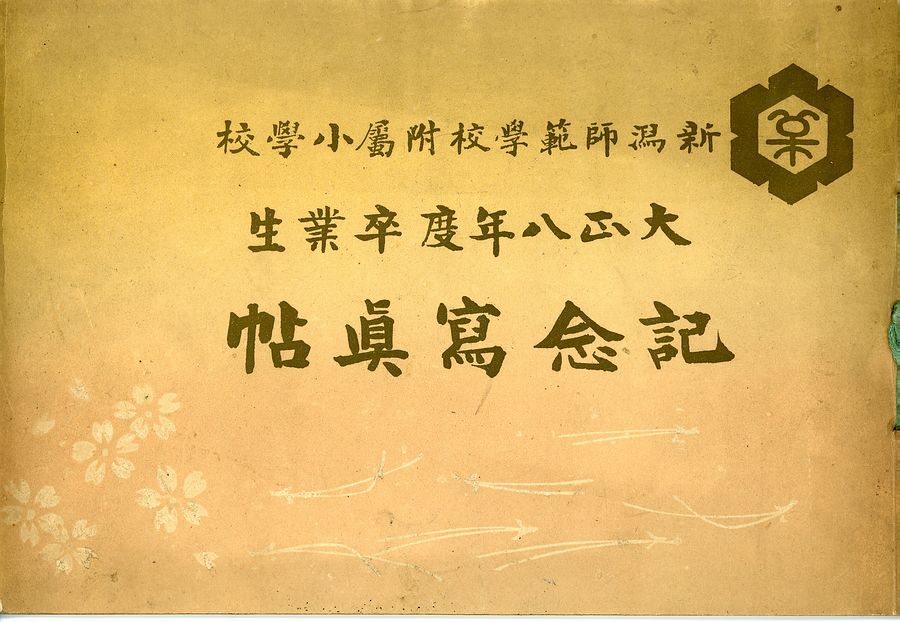 新潟師範學校附屬小學校
大正八年度卒業生
記念寫眞帖